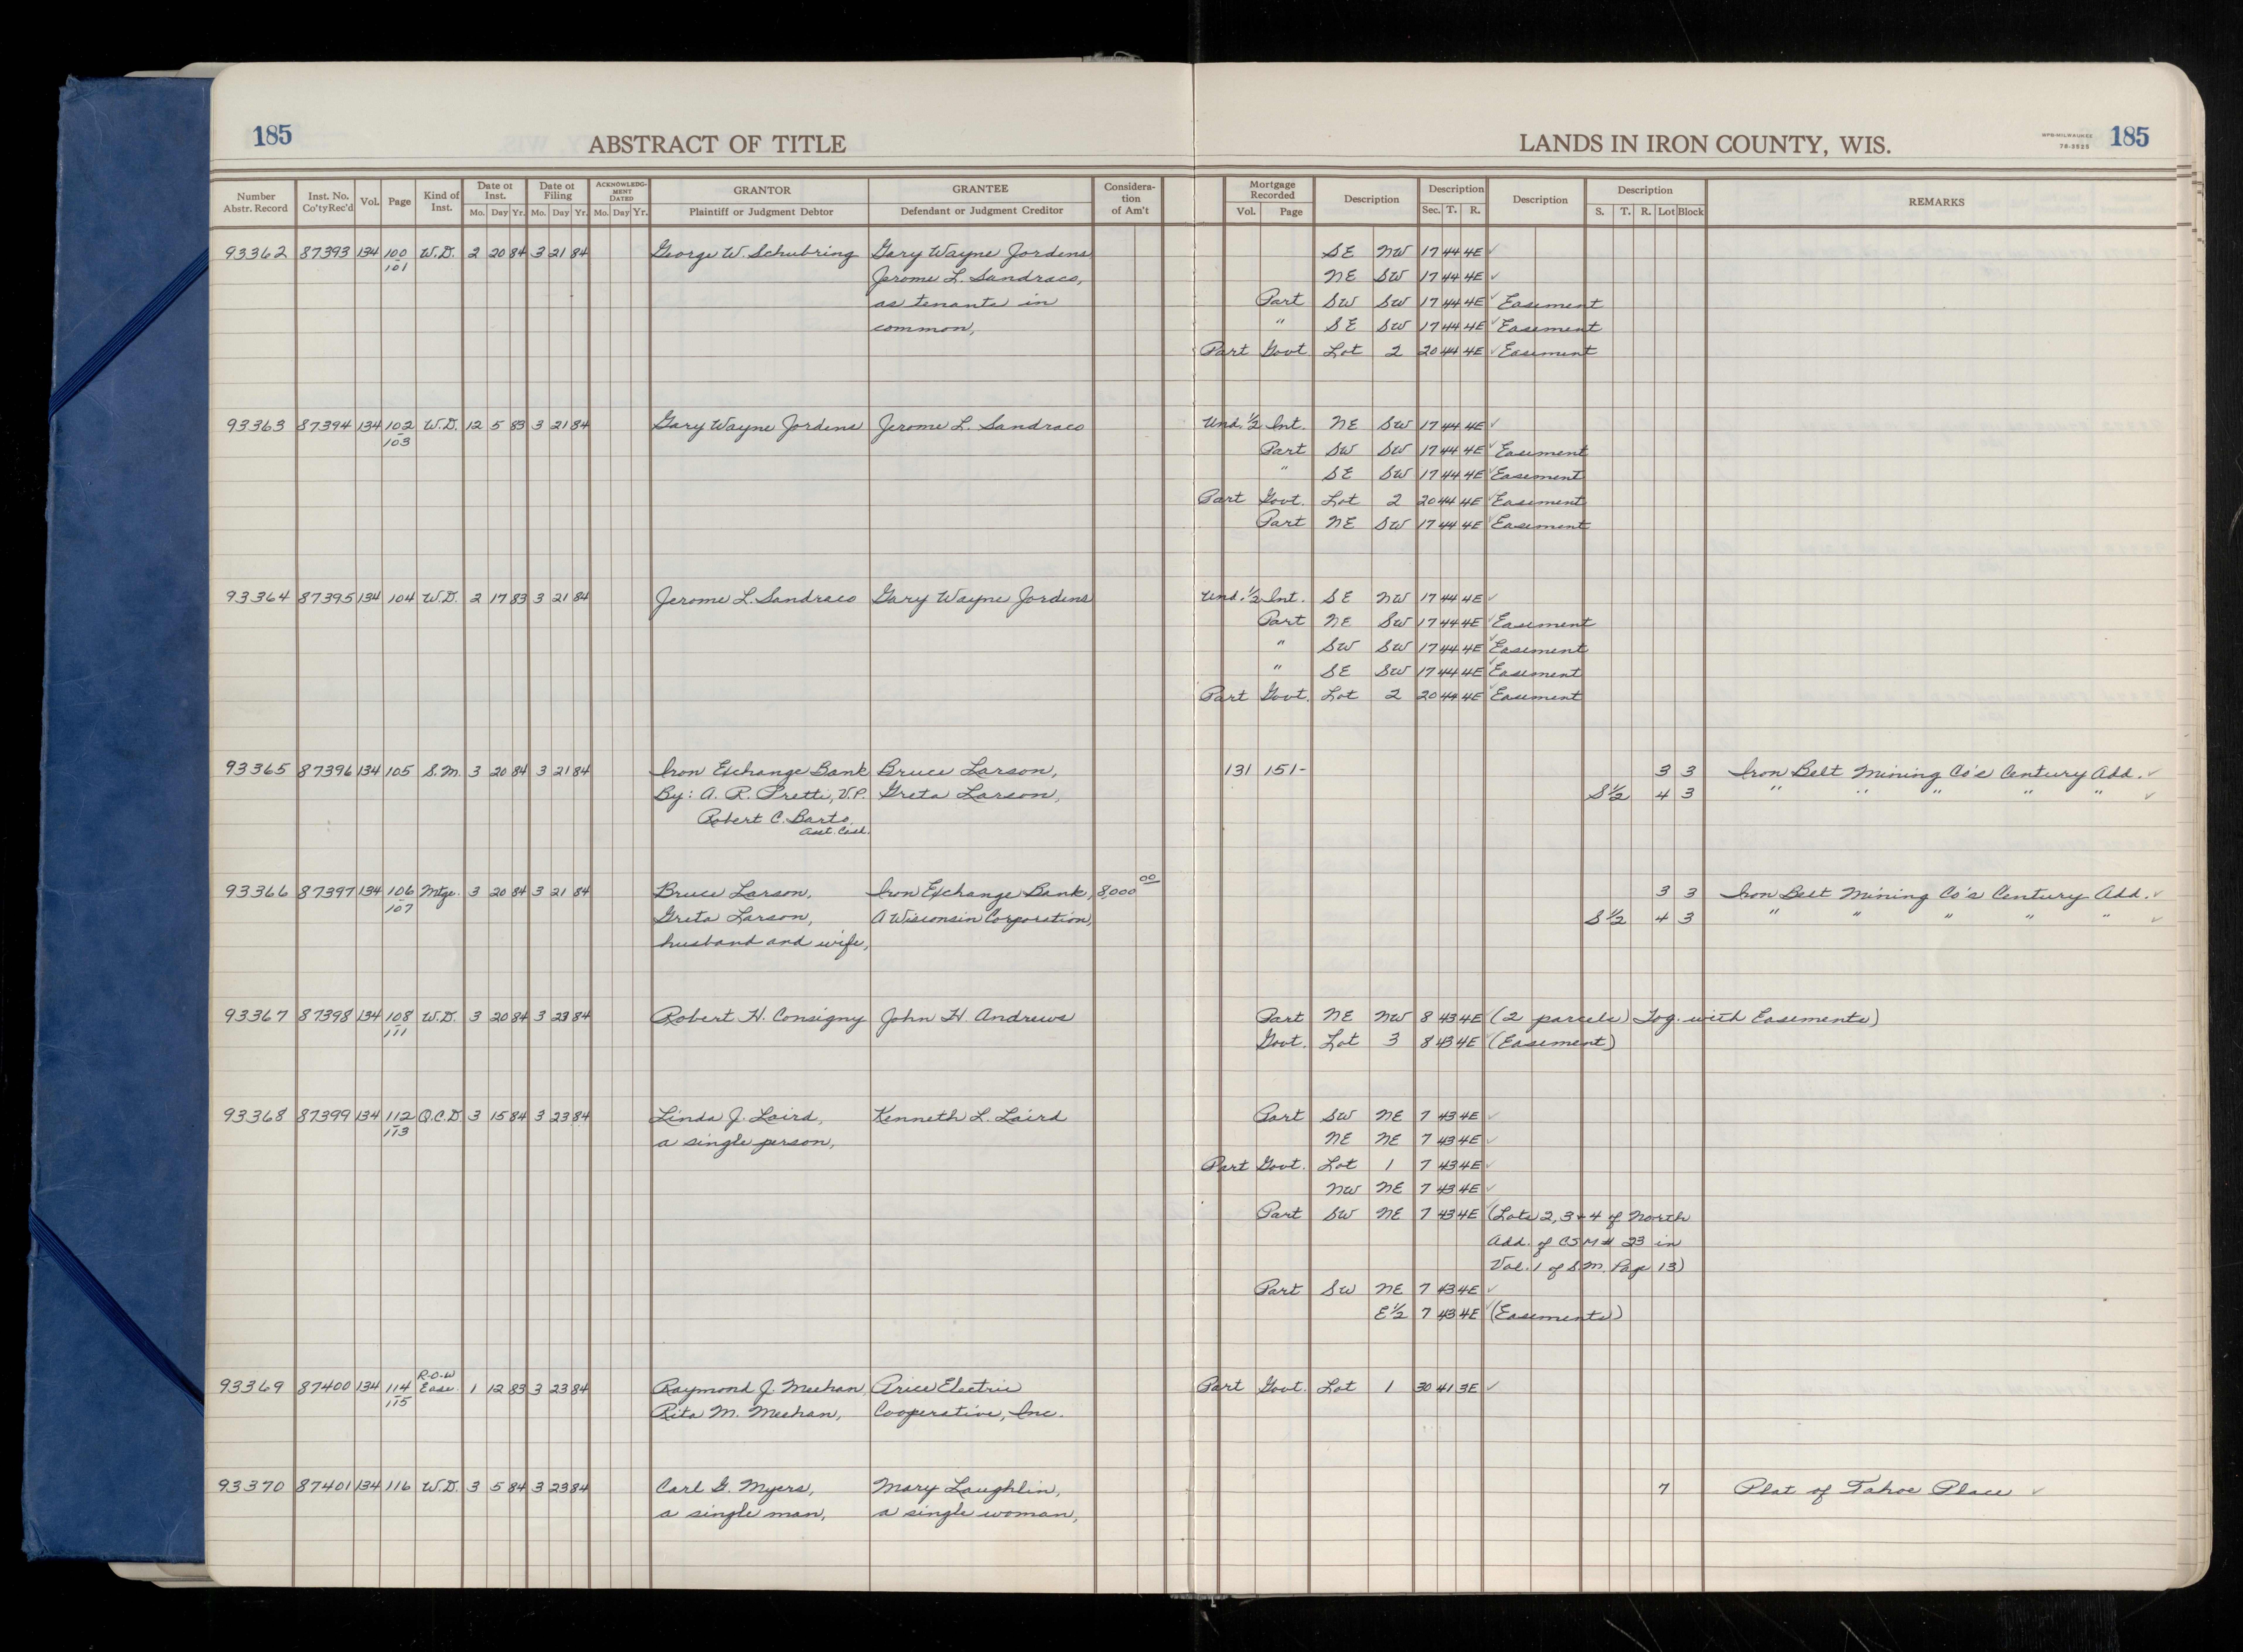 185 ABSTRACT OF TITLE LANDS IN IRON COUNTY, WIS. MPB-MILWAUKEE 76-3525 185
Number Abstr. Record Inst. No. Co'ty Rec'd Vol. Page Kind of Inst. Date of Inst. Mo. Day Yr. Date of Filing Mo. Day Yr. ACKNOWLEDGMENT DATED Mo. Day Yr. GRANTOR Plaintiff or Judgment Debtor GRANTEE Defendant or Judgment Creditor Consideration of Am't Mortgage Recorded Vol. Page Description Description Sec. T. R. Description Description S. T. R. Lot Block REMARKS
93362 87393 134 100 W.D. 2 20 84 3 21 84 George W. Schubring Gary Wayne Jordens SE NW 17 44 4E ✓
101 Jerome L. Sandraco, NE SW 17 44 4E ✓
as tenants in Part SW SW 17 44 4E ✓ Easement
common, " SE SW 17 44 4E ✓ Easement
Part Govt Lot 2 20 44 4E ✓ Easement
93363 87394 134 102 W.D. 12 5 83 3 21 84 Gary Wayne Jordens Jerome L. Sandraco Und. 1/2 Int. NE SW 17 44 4E ✓
103 Part SW SW 17 44 4E ✓ Easement
" SE SW 17 44 4E ✓ Easement
Part Govt. Lot 2 20 44 4E ✓ Easement
Part NE SW 17 44 4E ✓ Easement
93364 87395 134 104 W.D. 2 17 83 3 21 84 Jerome L. Sandraco Gary Wayne Jordens Und. 1/2 Int. SE NW 17 44 4E ✓
Part NE SW 17 44 4E ✓ Easement
" SW SW 17 44 4E ✓ Easement
" SE SW 17 44 4E ✓ Easement
Part Govt. Lot 2 20 44 4E ✓ Easement
93365 87396 134 105 S.M. 3 20 84 3 21 84 Iron Exchange Bank Bruce Larson, 131 151- 3 3 Iron Belt Mining Co's Century Add. ✓
By: A. R. Pretti, V.P. Greta Larson, S 1/2 4 3 " " " " " ✓
Robert C. Barto,
Asst. Cash.
93366 87397 134 106 Mtge. 3 20 84 3 21 84 Bruce Larson, Iron Exchange Bank, 8,000 00 3 3 Iron Belt Mining Co's Century Add. ✓
107 Greta Larson, A Wisconsin Corporation, S 1/2 4 3 " " " " " ✓
husband and wife,
93367 87398 134 108 W.D. 3 20 84 3 23 84 Robert H. Consigny John H Andrews Part NE NW 8 43 4E (2 parcels) Tog. with Easements)
111 Govt. Lot 3 8 43 4E (Easement)
93368 87399 134 112 Q.C.D. 3 15 84 3 23 84 Linda J. Laird, Kenneth L. Laird Part SW NE 7 43 4E ✓
113 a single person, NE NE 7 43 4E ✓
Part Govt. Lot 1 7 43 4E ✓
NW NE 7 43 4E ✓
Part SW NE 7 43 4E (Lots 2, 3 + 4 of North
Add. of CSM # 23 in
Vol. 1 of S.M. Page 13)
Part SW NE 7 43 4E ✓
E 1/2 7 43 4E (Easements)
R-O-W
93369 87400 134 114 Ease. 1 12 83 3 23 84 Raymond J. Meehan, Price Electric Part Govt. Lot 1 30 41 3E ✓
115 Rita M. Meehan, Cooperative, Inc.
93370 87401 134 116 W.D. 3 5 84 3 23 84 Carl G. Myers, Mary Laughlin, 7 Plat of Tahoe Place ✓
a single man, a single woman,